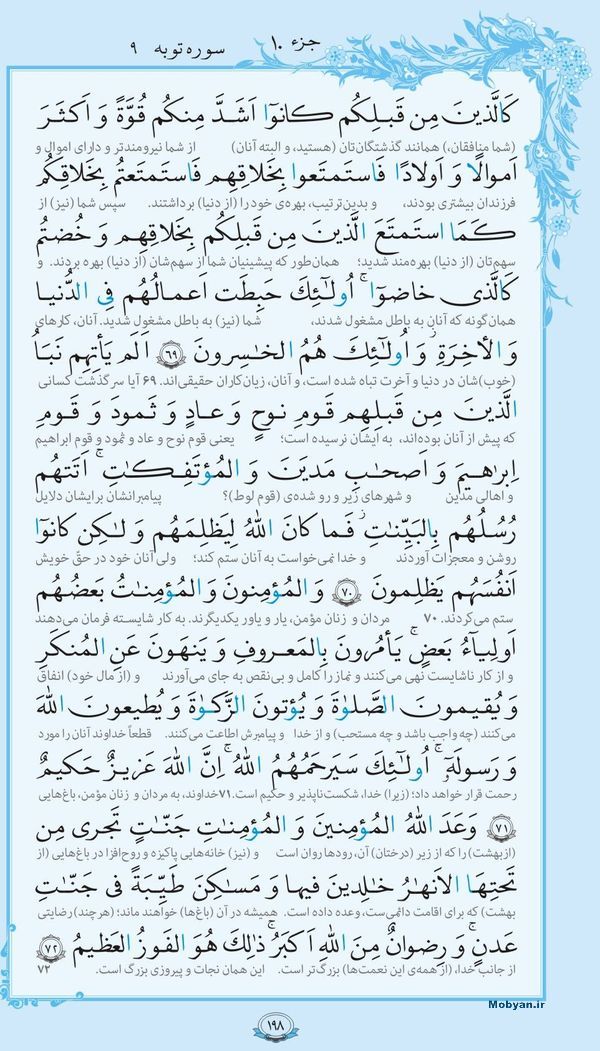 جزء ۱۰ سوره توبه ۹
كَالَّذينَ مِن قَبلِكُم كانوا اَشَدَّ مِنكُم قُوَّةً وَ اَكثَرَ
(شما منافقان،) همانند گذشتگان‌تان (هستید)، و البته آنان) از شما نیرومندتر و دارای اموال و
اَموالًا وَ اَولادًا فَاستَمتَعوا بِخَلاقِهِم فَاستَمتَعتُم بِخَلاقِكُم
فرزندان بیشتری بودند، و بدین‌ترتیب، بهره‌ی خود را (از دنیا) برداشتند. سپس شما (نیز) از
كَمَا استَمتَعَ الَّذينَ مِن قَبلِكُم بِخَلاقِهِم وَ خُضتُم
سهم‌تان (از دنیا) بهره‌مند شدید؛ همان‌طور که پیشینیان شما از سهم‌شان (از دنیا) بهره بردند. و
كَالَّذى خاضوا ۚ اُولـٰئِكَ حَبِطَت اَعمالُهُم فِى الدُّنيا
همان‌گونه که آنان به باطل مشغول شدند، شما (نیز) به باطل مشغول شدید. آنان، کارهای
وَ الأخِرَةِ ۖ وَ اُولـٰئِكَ هُمُ الخـٰسِرونَ ۶۹ اَلَم يَأتِهِم نَبَأُ
(خوب)شان در دنیا و آخرت تباه شده است، و آنان، زیان‌کاران حقیقی‌اند. ۶۹ آیا سرگذشت کسانی
الَّذينَ مِن قَبلِهِم قَومِ نوحٍ وَ عادٍ وَ ثَمودَ وَ قَومِ
که پیش از آنان بوده‌اند، به ایشان نرسیده است؛ یعنی قوم نوح و عاد و ثمود و قوم ابراهیم
اِبرٰهيمَ وَ اَصحـٰبِ مَديَنَ وَ المُؤتَفِكـٰتِ ۚ اَتَتهُم
و اهالی مدین و شهرهای زیر و رو شده‌ی (قوم لوط)؟ پیامبرانشان برایشان دلایل
رُسُلُهُم بِالبَيِّنـٰتِ ۖ فَما كانَ اللهُ لِيَظلِمَهُم وَ لـٰكِن كانوا
روشن و معجزات آوردند و خدا نمی‌خواست به آنان ستم کند؛ ولی آنان خود در حقّ خویش
اَنفُسَهُم يَظلِمونَ ۷۰ وَ المُؤمِنونَ وَ المُؤمِنـٰتُ بَعضُهُم
ستم می‌کردند. ۷۰ مردان و زنان مؤمن، یار و یاور یکدیگرند. به کار شایسته فرمان می‌دهند
اَولِياءُ بَعضٍ ۚ يَأمُرونَ بِالمَعروفِ وَ يَنهَونَ عَنِ المُنكَرِ
و از کار ناشایست نهی می‌کنند و نماز را کامل و بی‌نقص به جای می‌آورند و (از مال خود) انفاق
وَ يُقيمونَ الصَّلوٰةَ وَ يُؤتونَ الزَّكوٰةَ وَ يُطيعونَ اللهَ
می‌کنند (چه واجب باشد و چه مستحب) و از خدا و پیامبرش اطاعت می‌کنند. قطعاً خداوند آنان را مورد
وَ رَسولَهُ ۚ اُولـٰئِكَ سَيَرحَمُهُمُ اللهُ ۗ اِنَّ اللهَ عَزيزٌ حَكيمٌ
رحمت قرار خواهد داد؛ (زیرا) خدا، شکست‌ناپذیر و حکیم است. ۷۱ خداوند، به مردان و زنان مؤمن، باغ‌هایی
۷۱ وَعَدَ اللهُ المُؤمِنينَ وَ المُؤمِنـٰتِ جَنّـٰتٍ تَجرى مِن
(از بهشت) را که از زیر (درختان) آن، رودها روان است و (نیز) خانه‌هایی پاکیزه و روح‌افزا در باغ‌هایی (از
تَحتِهَا الاَنهـٰرُ خـٰلِدينَ فيها وَ مَسـٰكِنَ طَيِّبَةً فى جَنّـٰتِ
بهشت) که برای اقامت دائمی‌ست، وعده داده است. همیشه در آن (باغ‌ها) خواهند ماند؛ (هر چند) رضایتی
عَدنٍ ۚ وَ رِضوانٌ مِنَ اللهِ اَكبَرُ ۚ ذٰلِكَ هُوَ الفَوزُ العَظيمُ ۷۲
از جانب خدا، (از همه‌ی این نعمت‌ها) بزرگ‌تر است. این همان نجات و پیروزی بزرگ است. ۷۲
Mobyan.ir
۱۹۸